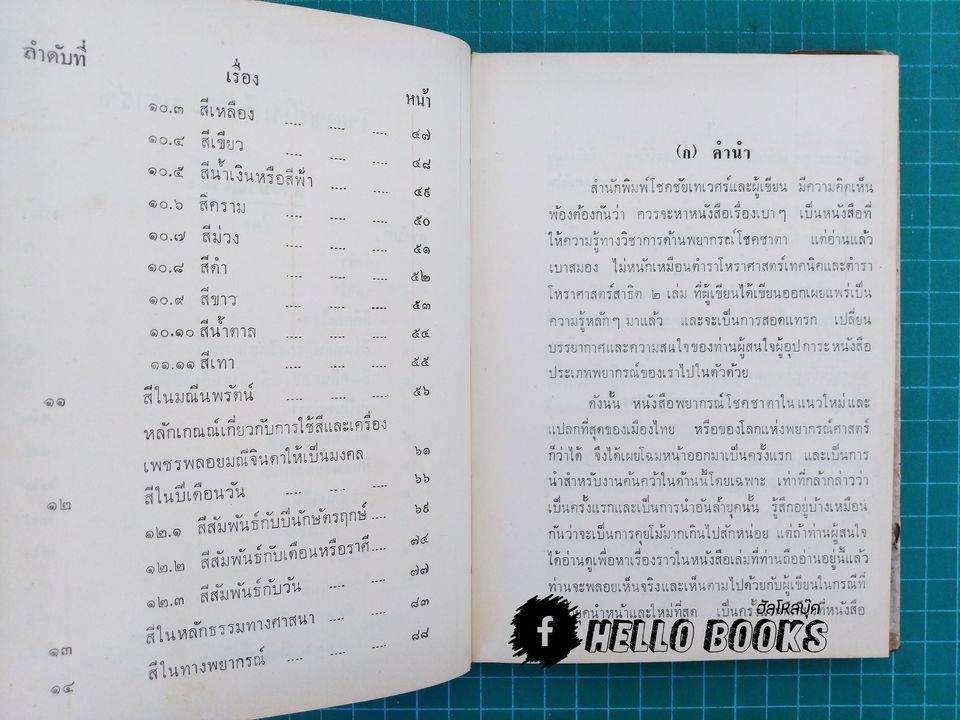 ลำดับที่
เรื่อง
หน้า
๑๐.๓ สีเหลือง .... .... .... ๔๗
๑๐.๔ สีเขียว .... .... .... ๔๘
๑๐.๕ สีน้ำเงินหรือสีฟ้า .... .... ๔๙
๑๐.๖ สีคราม .... .... .... ๕๐
๑๐.๗ สีม่วง .... .... .... ๕๑
๑๐.๘ สีดำ .... .... .... ๕๒
๑๐.๙ สีขาว .... .... .... ๕๓
๑๐.๑๐ สีน้ำตาล .... .... .... ๕๔
๑๑.๑๑ สีเทา .... .... .... ๕๕
๑๑ สีในมณีนพรัตน์ .... .... .... ๕๖
หลักเกณฑ์เกี่ยวกับการใช้สีและเครื่อง
เพชรพลอยมณีจินดาให้เป็นมงคล ๖๑
๑๒ สีในปีเดือนวัน .... .... .... ๖๖
๑๒.๑ สีสัมพันธ์กับปีนักษัตรฤกษ์ .... ๖๙
๑๒.๒ สีสัมพันธ์กับเดือนหรือราศี .... ๗๔
๑๒.๓ สีสัมพันธ์กับวัน .... .... ๗๗
๑๓ สีในหลักธรรมทางศาสนา .... .... ๘๓
๑๔ สีในทางพยากรณ์ .... .... .... ๘๘
(ก) คำนำ
สำนักพิมพ์โชคชัยเทเวศร์และผู้เขียน มีความคิดเห็น
พ้องต้องกันว่า ควรจะหาหนังสือเรื่องเบาๆ เป็นหนังสือที่
ให้ความรู้ทางวิชาการด้านพยากรณ์โชคชาตา แต่อ่านแล้ว
เบาสมอง ไม่หนักเหมือนตำราโหราศาสตร์เทคนิคและตำรา
โหราศาสตร์สาธิต ๒ เล่ม ที่ผู้เขียนได้เขียนออกเผยแพร่เป็น
ความรู้หลักๆ มาแล้ว และจะเป็นการสอดแทรก เปลี่ยน
บรรยากาศและความสนใจของท่านผู้สนใจผู้อุปการะหนังสือ
ประเภทพยากรณ์ของเราไปในตัวด้วย
ดังนั้น หนังสือพยากรณ์โชคชาตาในแนวใหม่และ
แปลกที่สุดของเมืองไทย หรือของโลกแห่งพยากรณ์ศาสตร์
ก็ว่าได้ จึงได้เผยโฉมหน้าออกมาเป็นครั้งแรก และเป็นการ
นำสำหรับงานค้นคว้าในด้านนี้โดยเฉพาะ เท่าที่กล้ากล่าวว่า
เป็นครั้งแรกและเป็นการนำอันล้ำยุคนั้น รู้สึกอยู่บ้างเหมือน
กันว่าจะเป็นการคุยโม้มากเกินไปสักหน่อย แต่ถ้าท่านผู้สนใจ
ได้อ่านดูเพื่อหาเรื่องราวในหนังสือเล่มที่ท่านถืออ่านอยู่นี้แล้ว
ท่านจะพลอยเห็นจริงและเห็นตามไปด้วยกับผู้เขียนในกรณีที่
ยุคนำหน้าและใหม่ที่สุด เป็นครั้ง ที่หนังสือ
ฮัลโหลบุ๊ค
f HELLO BOOKS